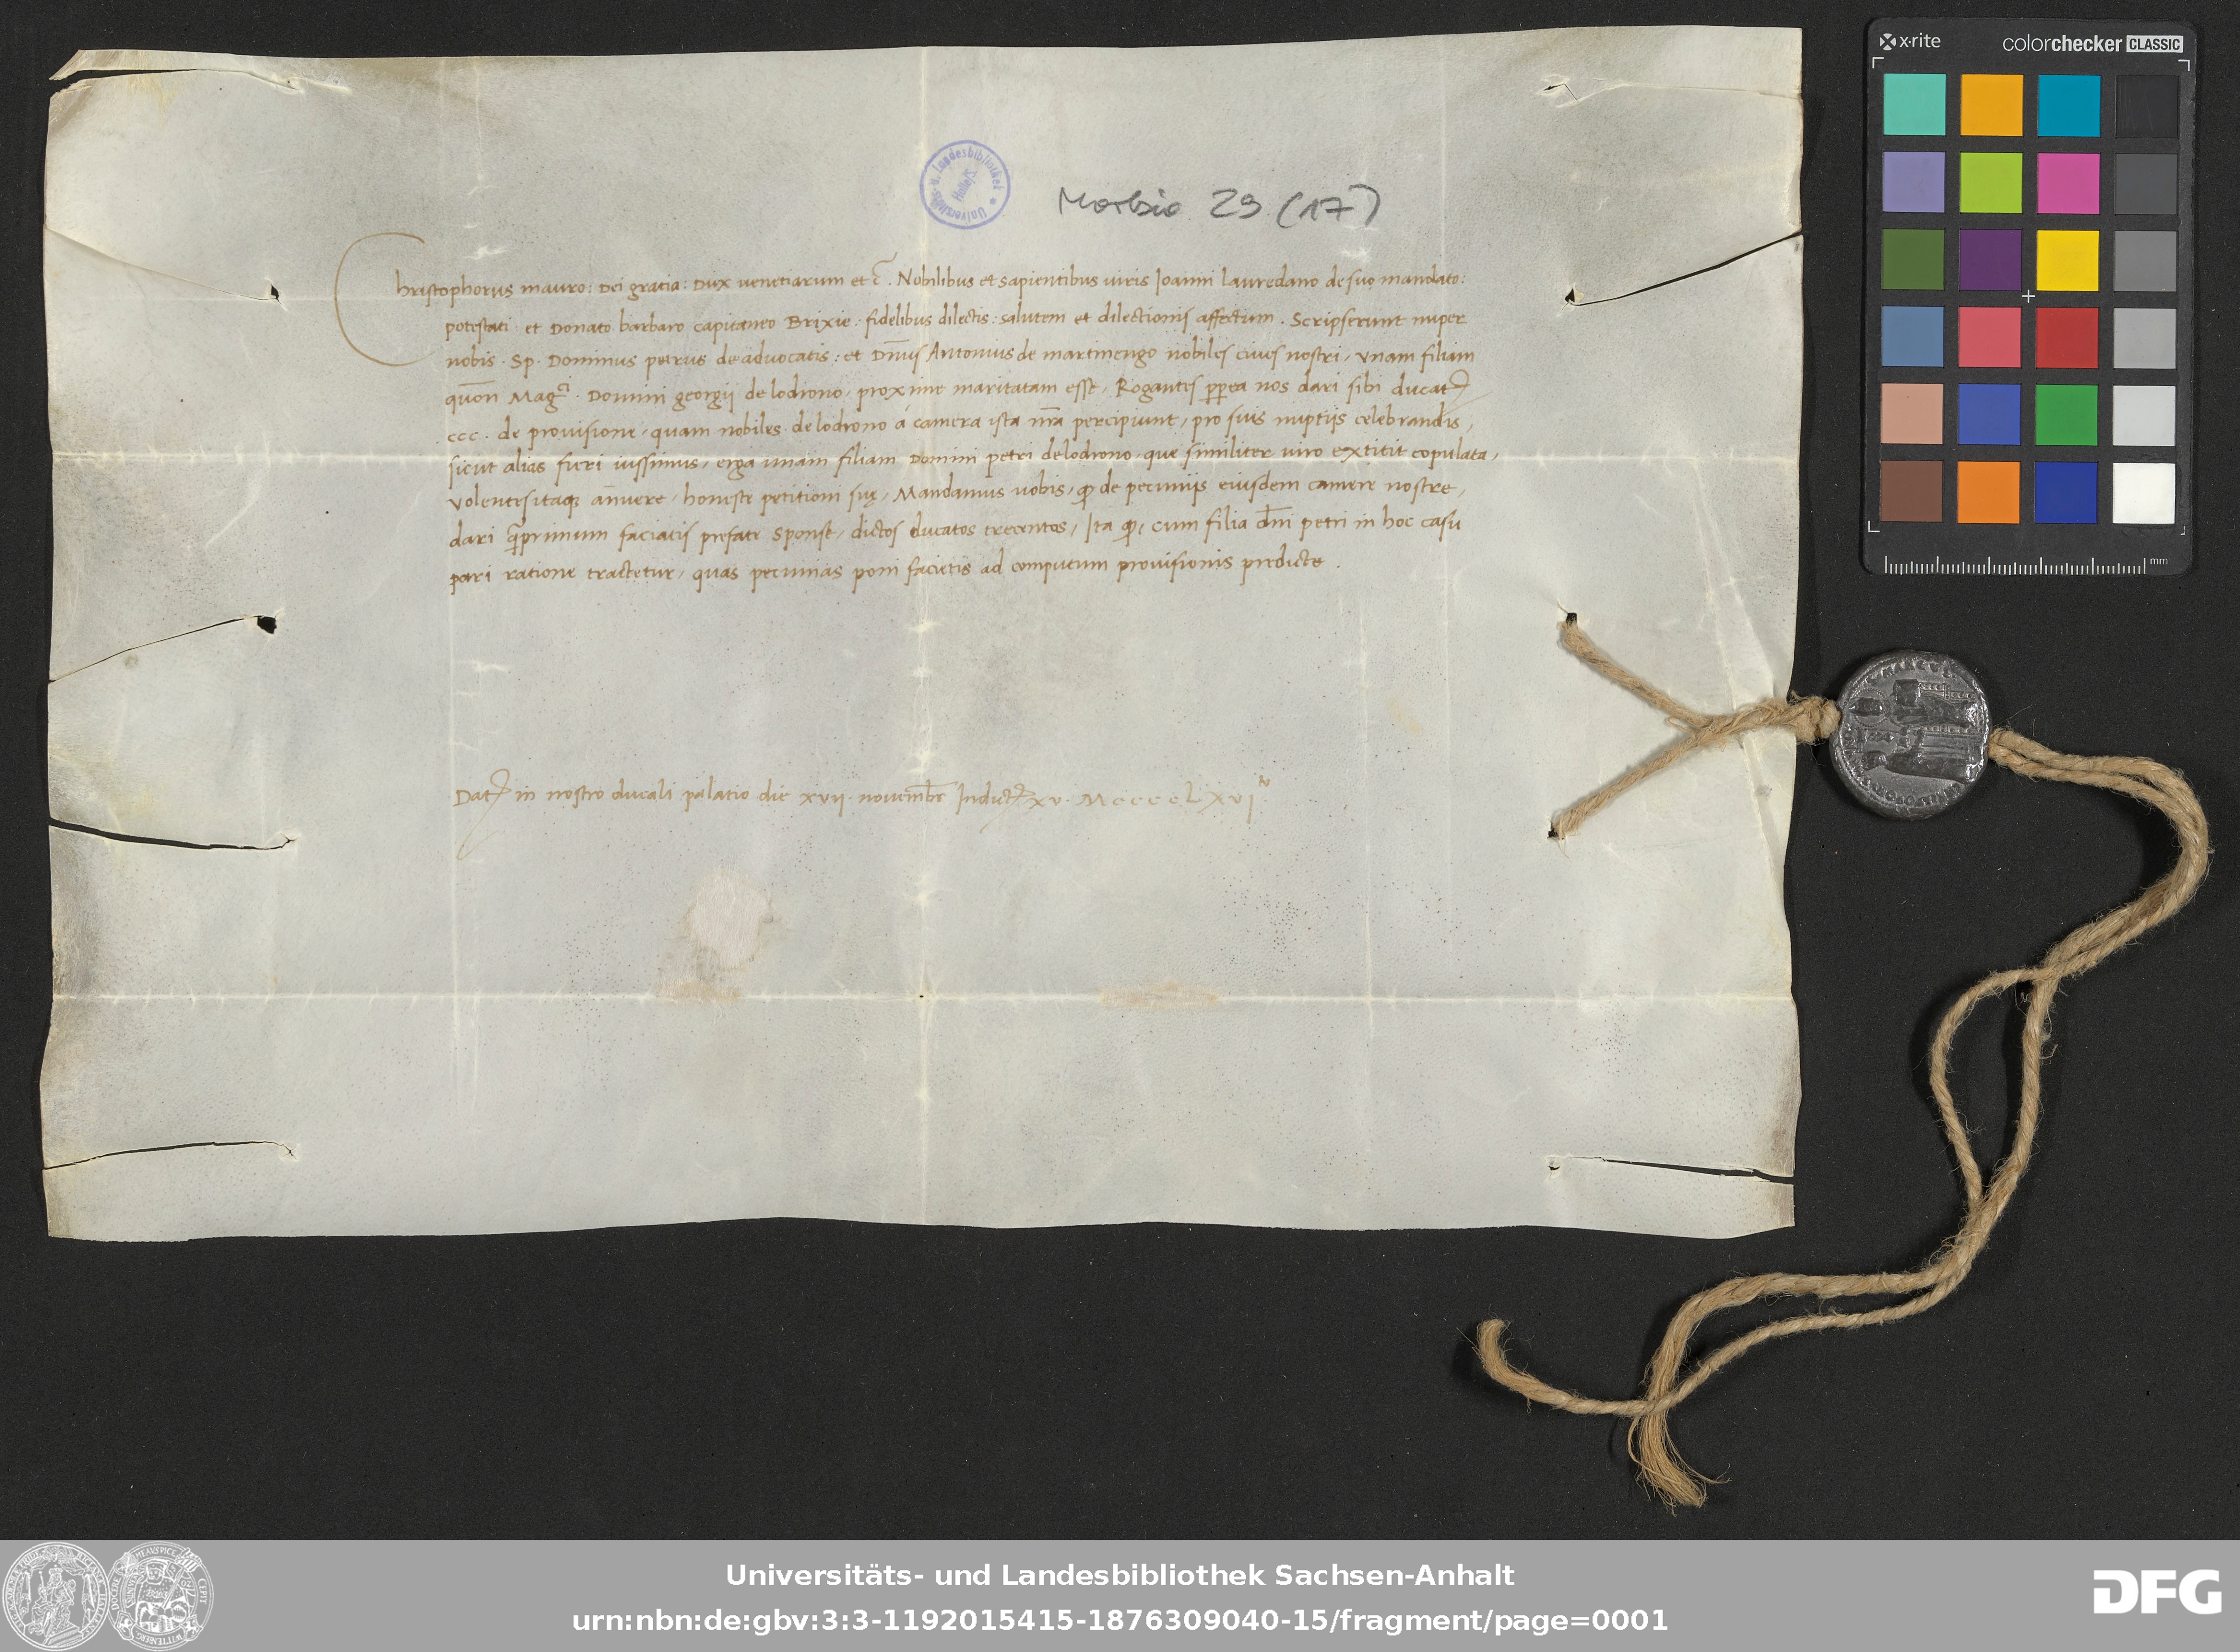 Morbio 29 (17)
Universitäts- u. Landesbibliothek Halle/S.
Christophorus mauro: Dei gratia: Dux venetiarum et c̃. Nobilibus et sapientibus viris Joanni Lauredano de suo mandato:
potestati et Donato barbaro capitaneo Brixie: fidelibus dilectis: salutem et dilectionis affectum. Scripserunt nuper
nobis. Sp. Dominus petrus de advocatis: et Dn̄us Antonius de martinengo nobiles cives nostri, unam filiam
quōn Mag.ci Domini georgij de lodrono, proxime maritatam esse, Rogantes pp̱ea nos dari sibi ducat
ccc. de provisione, quam nobiles de lodrono á camera ista nr̄a percipiunt, pro suis nuptijs celebrandis,
sicut alias fieri iussimus, erga unam filiam Domini petri de lodrono, que similiter viro extitit copulata,
Volentes itaq annuere, honeste petitioni suę, Mandamus vobis, ꝙ de pecunijs eiusdem camere nostre,
dari q̄primum faciatis prefate sponse, dictos ducatos trecentos, Ita ꝙ, cum filia dn̄i petri in hoc casu
pari ratione tractetur, quas pecunias poni facietis ad computum provisionis predicte.
Dat in nostro ducali palatio die xvij. novembr̄ Indict xv. MccccLxvj.
x·rite
colorchecker CLASSIC
mm
Universitäts- und Landesbibliothek Sachsen-Anhalt
urn:nbn:de:gbv:3:3-1192015415-1876309040-15/fragment/page=0001
DFG